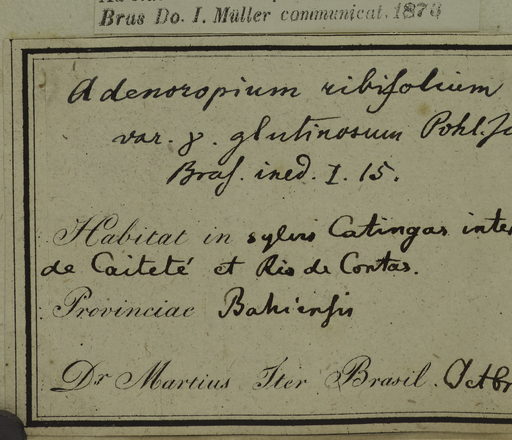 Brus Do. I. Müller communicat. 1876
Adenoropium ribifolium
var. γ. glutinosum Pohl.
Bras. ined. I. 15.
Habitat in sylvis Catingas inter
de Caiteté et Rio de Contas.
Provinciae Bahiensis
Dr Martius Iter Brasil. Octbr